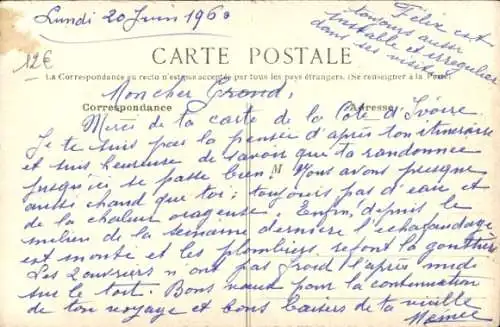 Lundi 20 Juin 1960
Félix est
toujours aussi
instable et irrégulier
dans ses visites
12€
CARTE POSTALE
La Correspondance au recto n'est pas acceptée par tous les pays étrangers. (Se renseigner à la Poste)
Correspondance
Adresse
Mon cher Grand,
Merci de la carte de la Côte d'Ivoire
Je te suis par la pensée d'après ton itinéraire
et suis heureuse de savoir que ta randonnée
M
jusqu'ici se passe bien. Nous avons presque
aussi chaud que toi; toujours pas d'eau et
de la chaleur orageuse. Enfin, depuis le
milieu de la semaine dernière l'échafaudage
est monté et les plombiers refont la gouttière
Les 2 ouvriers n'ont pas froid l'après midi
sur le toit. Bons vœux pour la continuation
de ton voyage et bons baisers de ta vieille
Mémée